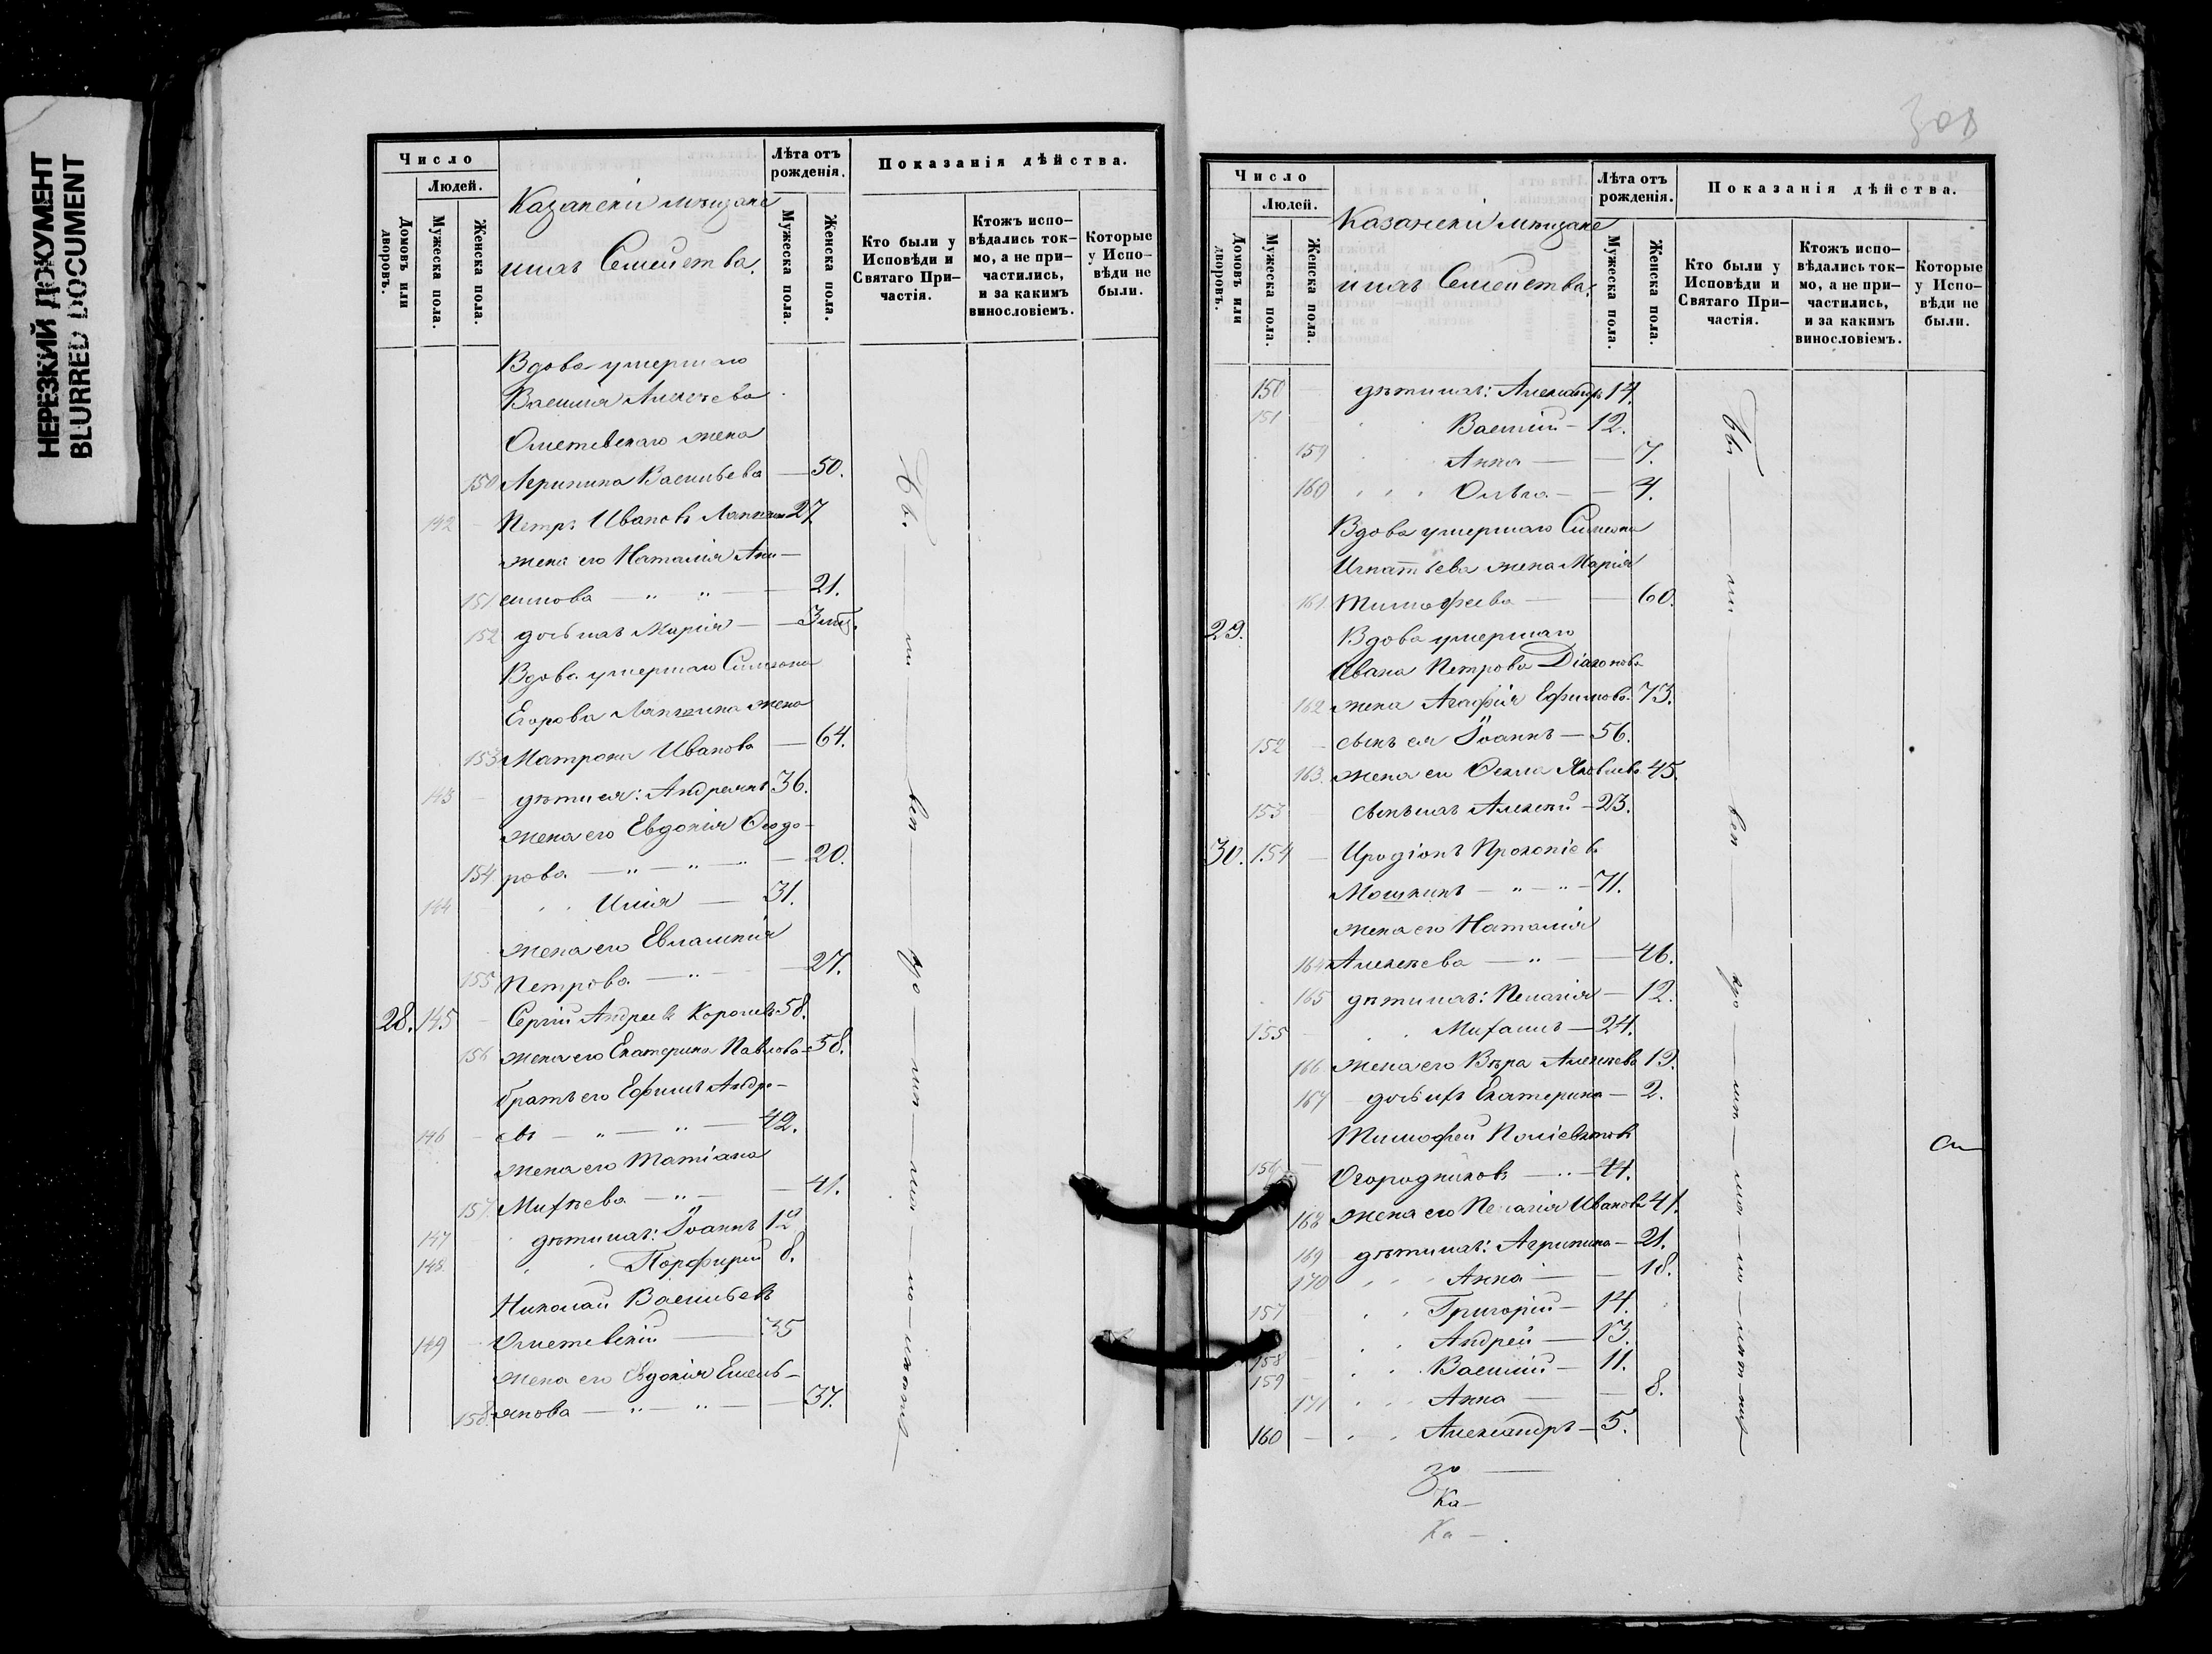 НЕРЕЗКИЙ ДОКУМЕНТ
BLURRED DOCUMENT
Число
Людей.
Домовъ или дворовъ.
Мужеска пола.
Женска пола.
Казанскіи мѣщане
ихъ Семейства.
Лѣта отъ рожденія.
Мужеска пола.
Женска пола.
Показанія дѣйства.
Кто были у Исповѣди и Святаго Причастія.
Ктожъ исповѣдались токмо, а не причастились, и за какимъ винословіемъ.
Которые у Исповѣди не были.
Вдова умершаго
Василія Алексѣева
жена
150 Агрипина Васильева — 50.
142 Петръ Ивановъ 27.
жена его Наталія Ани—
151 симова — " " — 21.
152 дочь ихъ Марія — 3 мѣс.
Вдова умершаго Симеона
Егорова Лапшина жена
153 Матрона Иванова — 64.
143 дѣти ея: Андреянъ 36.
жена его Евдокія Ѳеодо—
154 рова — " — " — 20.
144 Илія — 31.
жена его Евлампія
155 Петрова — " — 27.
28. 145 Сергій Андреевъ Королевъ 58.
156 жена его Екатерина Павлова — 58.
братъ его Ефимъ Андре—
146 евъ — " — " — 42.
жена его Татіана
157. Михѣева — " — 41.
147 дѣти ихъ: Іоаннъ 12
148 Порфирій 8.
Николай Васильевъ
149 35
жена его Евдокія Емель—
158. янова — " — " — 37.
Бы — ли — вси — у —
308
Число
Людей.
Домовъ или дворовъ.
Мужеска пола.
Женска пола.
Казанскіи мѣщане
ихъ Семейства.
Лѣта отъ рожденія.
Мужеска пола.
Женска пола.
Показанія дѣйства.
Кто были у Исповѣди и Святаго Причастія.
Ктожъ исповѣдались токмо, а не причастились, и за какимъ винословіемъ.
Которые у Исповѣди не были.
150 дѣти ихъ: Александръ 14.
151 Василій — 12.
159 Анна — 7.
160 Ольга — 4.
Вдова умершаго Симеона
Игнатьева жена Марія
161. Тимофеева — 60.
29. Вдова умершаго
Ивана Петрова Діаконова
162 жена Агафія Ефимова 73.
152 сынъ ея Іоаннъ — 56.
163. жена его Ѳекла Яковлева 45
153 сынъ ихъ Алексѣй — 23.
30. 154 Иродіонъ Прокопіевъ
Мошкинъ — " — " — 71.
жена его Наталія
164 Алексѣева — " — 46.
165 дѣти ихъ: Пелагія — 12.
155 Михаилъ — 24.
166 жена его Вѣра Алексѣева 19.
167 дочь ихъ Екатерина — 2.
Тимофей Поліевктовъ
156 Огородниковъ — " — 44.
168 жена его Пелагія Иванова 41.
169 дѣти ихъ: Агрипина — 21.
170 Анна — 18.
157 Григорій — 14.
158 Андрей — 13.
159 Василій — 11.
171 Анна — 8.
160 Александръ — 5.
Ка—
Ка—